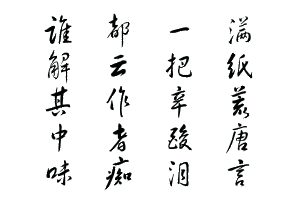 滿紙荒唐言
一把辛酸泪
都云作者痴
誰解其中味